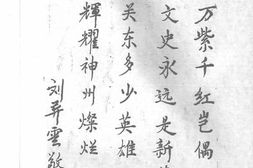 万紫千红岂偶
文史永远是新
关东多少英雄
辉耀神州灿烂
刘异云敬